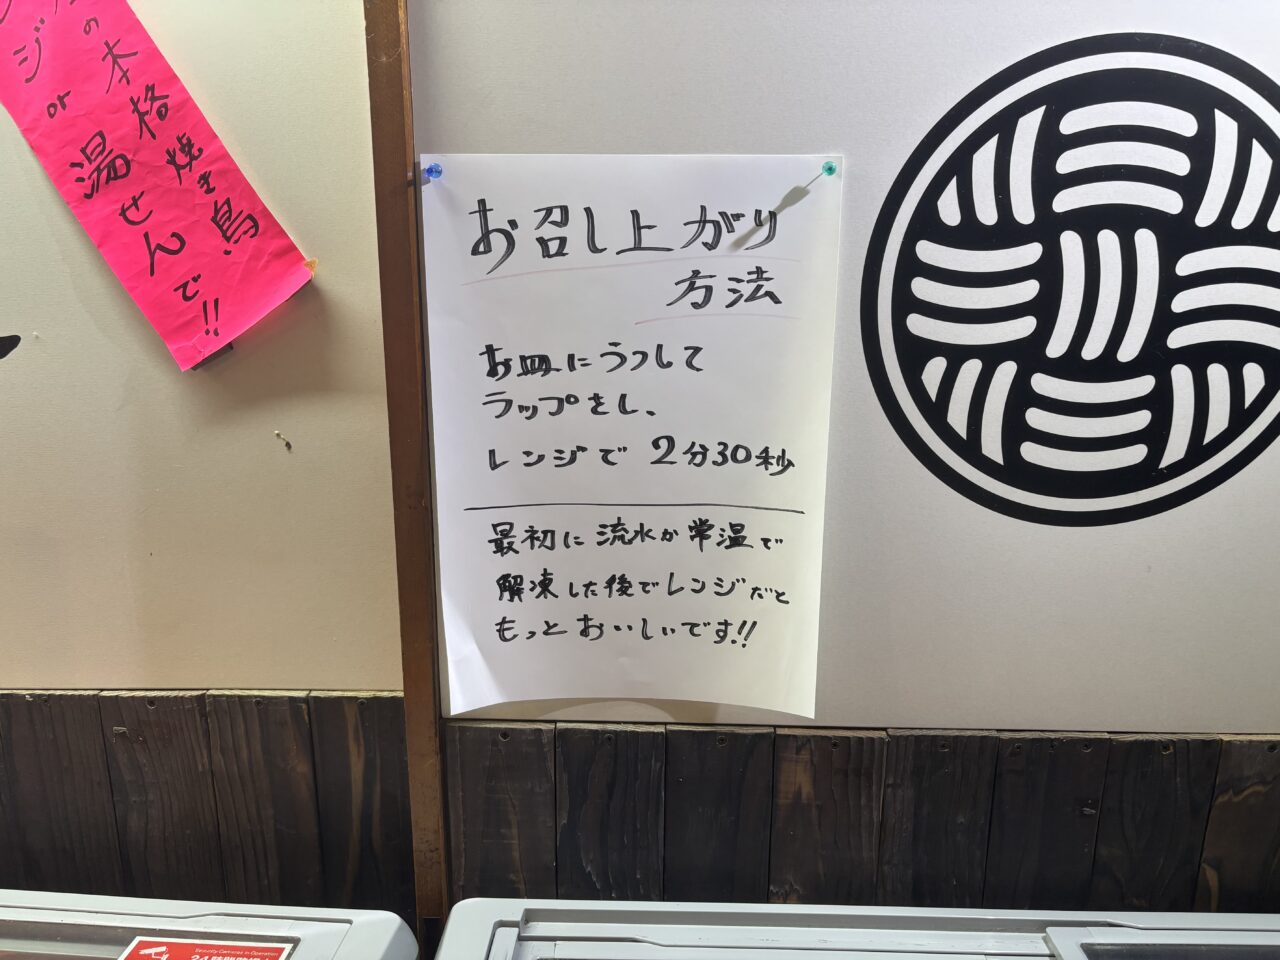 の本格焼き鳥
ジ or 湯せんで!!
お召し上がり
方法
お皿にうつして
ラップをし、
レンジで 2分30秒
最初に流水か常温で
解凍した後でレンジだと
もっとおいしいです!!
Security Cameras in Operation
24時間